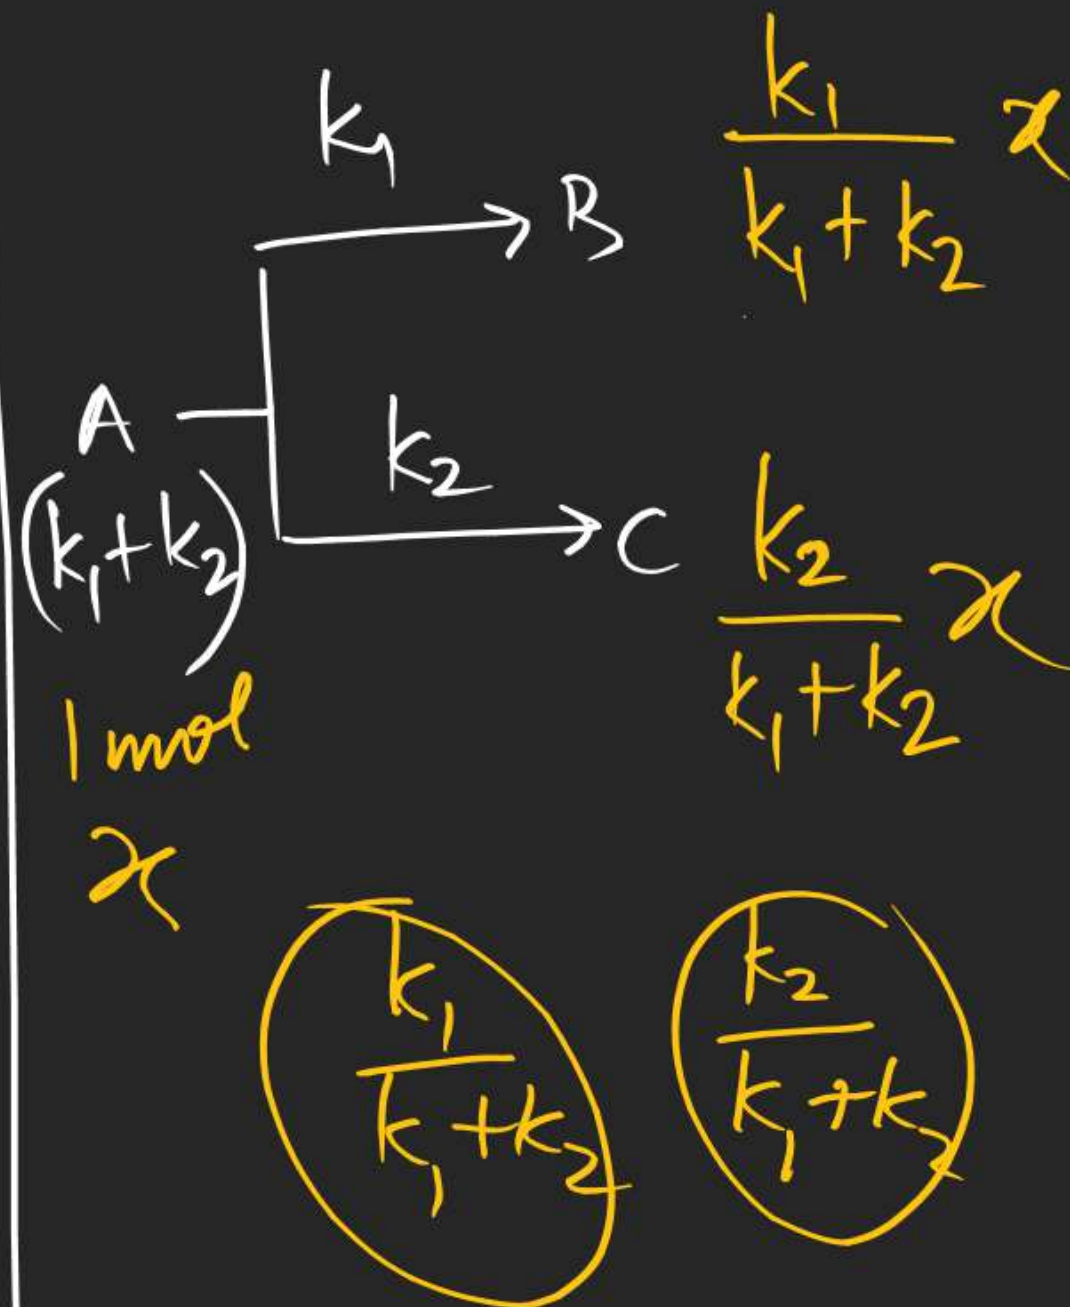 k₁
B
k₁/(k₁+k₂) x
A
(k₁+k₂)
k₂
C
k₂/(k₁+k₂) x
1 mol
x
k₁/(k₁+k₂)
k₂/(k₁+k₂)